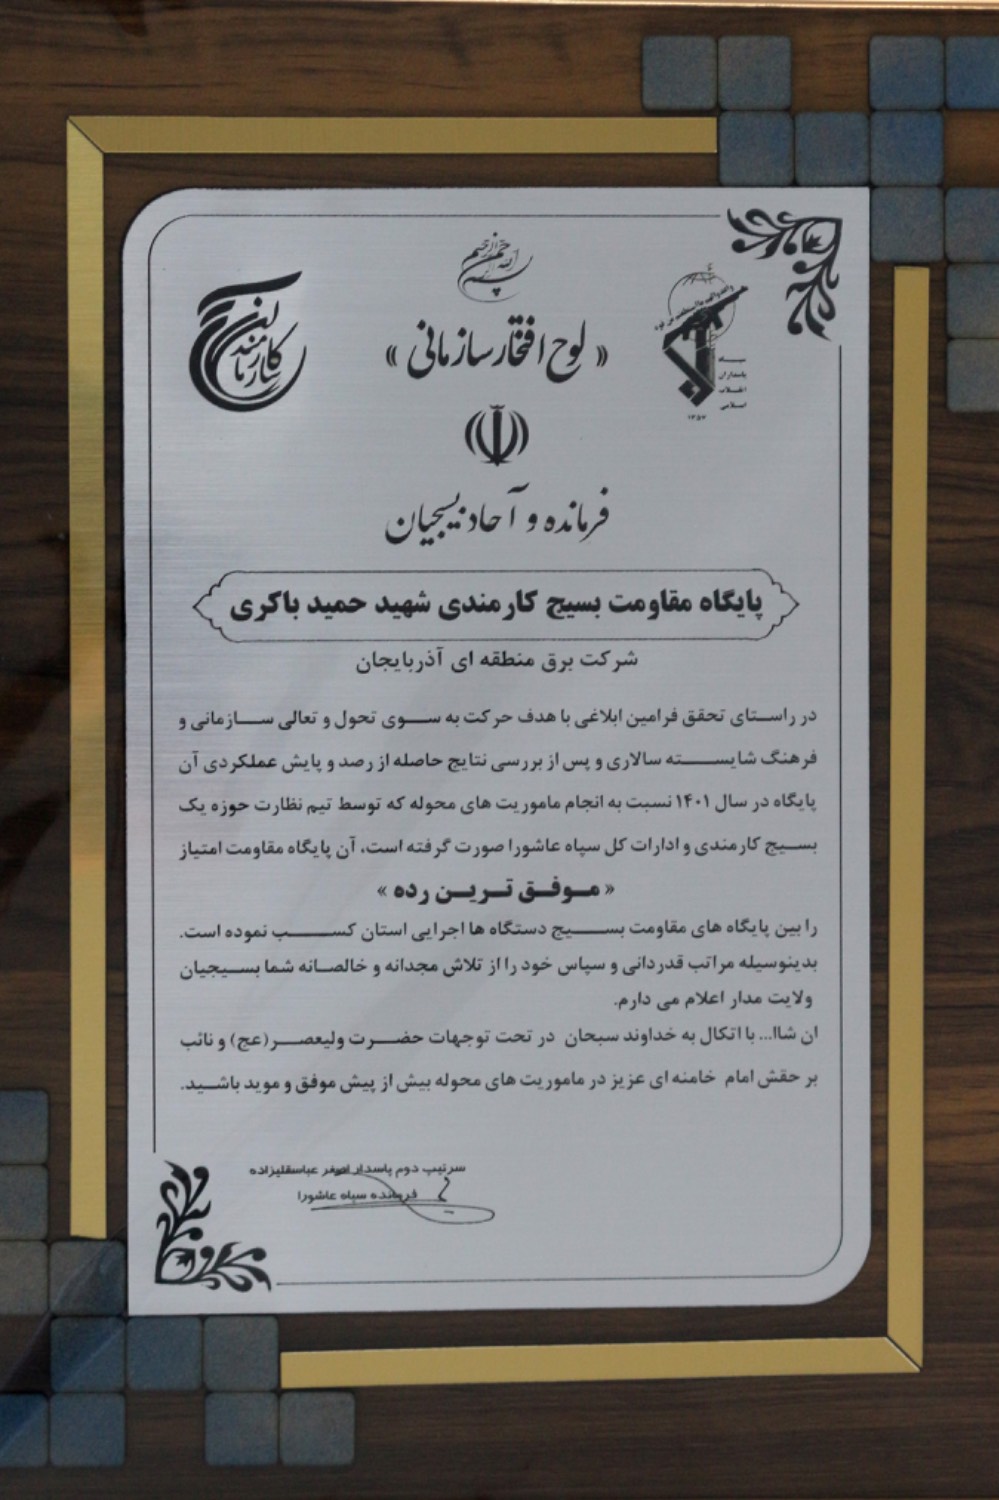 بسم الله الرحمن الرحیم
« لوح افتخار سازمانی »
بسیج
کارمندان
سپاه
پاسداران
انقلاب
اسلامی
۱۳۵۷
فرمانده و آحاد بسیجیان
پایگاه مقاومت بسیج کارمندی شهید حمید باکری
شرکت برق منطقه ای آذربایجان
در راستای تحقق فرامین ابلاغی با هدف حرکت به سوی تحول و تعالی سازمانی و
فرهنگ شایسته سالاری و پس از بررسی نتایج حاصله از رصد و پایش عملکردی آن
پایگاه در سال ۱۴۰۱ نسبت به انجام ماموریت های محوله که توسط تیم نظارت حوزه یک
بسیج کارمندی و ادارات کل سپاه عاشورا صورت گرفته است، آن پایگاه مقاومت امتیاز
« موفق ترین رده »
را بین پایگاه های مقاومت بسیج دستگاه ها اجرایی استان کسب نموده است.
بدینوسیله مراتب قدردانی و سپاس خود را از تلاش مجدانه و خالصانه شما بسیجیان
ولایت مدار اعلام می دارم.
ان شاا... با اتکال به خداوند سبحان در تحت توجهات حضرت ولیعصر(عج) و نائب
بر حقش امام خامنه ای عزیز در ماموریت های محوله بیش از پیش موفق و موید باشید.
سرتیپ دوم پاسدار اصغر عباسقلیزاده
فرمانده سپاه عاشورا